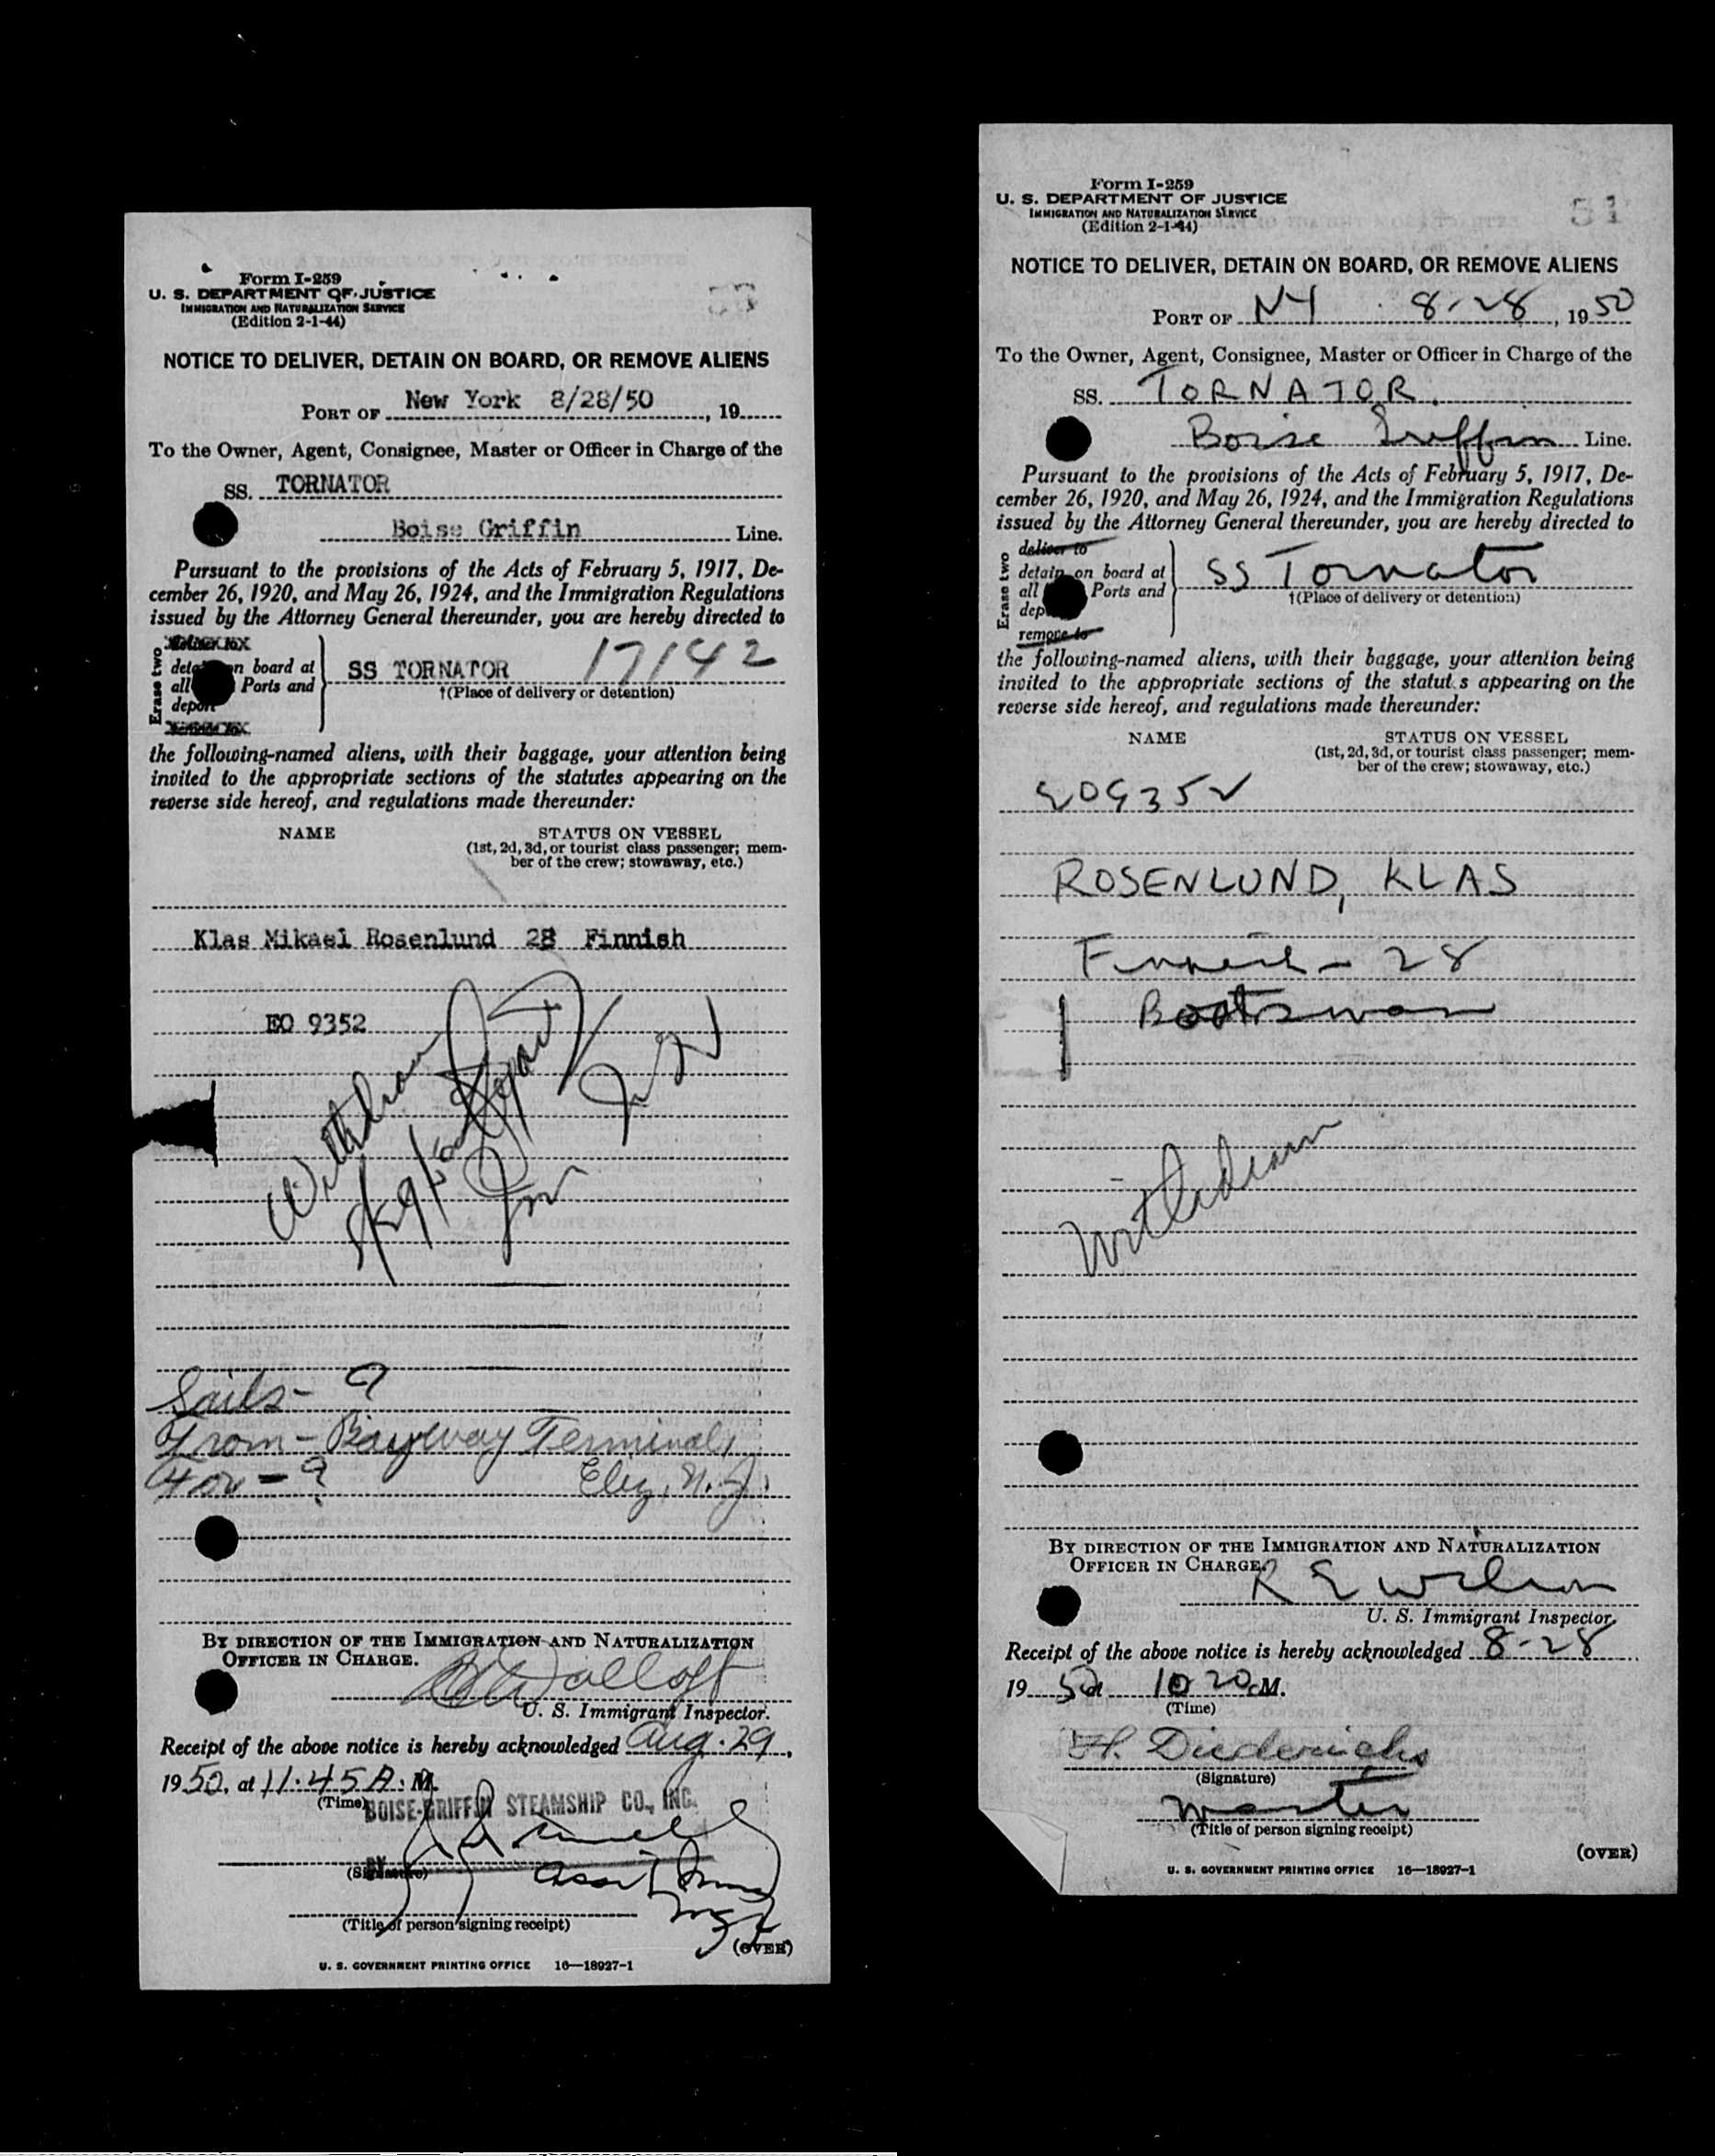 Form I-259
U. S. DEPARTMENT OF JUSTICE
IMMIGRATION AND NATURALIZATION SERVICE
(Edition 2-1-44)
NOTICE TO DELIVER, DETAIN ON BOARD, OR REMOVE ALIENS
PORT OF New York 8/28/50, 19
To the Owner, Agent, Consignee, Master or Officer in Charge of the
SS. TORNATOR
Boise Griffin Line.
Pursuant to the provisions of the Acts of February 5, 1917, De-
cember 26, 1920, and May 26, 1924, and the Immigration Regulations
issued by the Attorney General thereunder, you are hereby directed to
Erase two
detain on board at
all Ports and
deport
SS TORNATOR 17142
†(Place of delivery or detention)
the following-named aliens, with their baggage, your attention being
invited to the appropriate sections of the statutes appearing on the
reverse side hereof, and regulations made thereunder:
NAME STATUS ON VESSEL
(1st, 2d, 3d, or tourist class passenger; mem-
ber of the crew; stowaway, etc.)
Klas Mikael Rosenlund 28 Finnish
EO 9352
Withdrawn
8/29/50
Sails - ?
From - Bayway Terminal,
For - ? Eliz, N.J.
BY DIRECTION OF THE IMMIGRATION AND NATURALIZATION
OFFICER IN CHARGE.
U. S. Immigrant Inspector.
Receipt of the above notice is hereby acknowledged Aug. 29,
1950, at 11:45 A. M.
(Time)
BOISE-GRIFFIN STEAMSHIP CO., INC.
BY
(Signature)
(Title of person signing receipt)
(OVER)
U. S. GOVERNMENT PRINTING OFFICE 16—18927-1
Form I-259
U. S. DEPARTMENT OF JUSTICE
IMMIGRATION AND NATURALIZATION SERVICE
(Edition 2-1-44)
51
NOTICE TO DELIVER, DETAIN ON BOARD, OR REMOVE ALIENS
PORT OF NY 8-28, 1950
To the Owner, Agent, Consignee, Master or Officer in Charge of the
SS. TORNATOR.
Boise Griffin Line.
Pursuant to the provisions of the Acts of February 5, 1917, De-
cember 26, 1920, and May 26, 1924, and the Immigration Regulations
issued by the Attorney General thereunder, you are hereby directed to
Erase two
deliver to
detain on board at
all Ports and
dep
remove to
SS Tornator
†(Place of delivery or detention)
the following-named aliens, with their baggage, your attention being
invited to the appropriate sections of the statutes appearing on the
reverse side hereof, and regulations made thereunder:
NAME STATUS ON VESSEL
(1st, 2d, 3d, or tourist class passenger; mem-
ber of the crew; stowaway, etc.)
EO 9352
ROSENLUND, KLAS
Finnish - 28
Boatswan
Withdrawn
BY DIRECTION OF THE IMMIGRATION AND NATURALIZATION
OFFICER IN CHARGE.
R E Wilson
U. S. Immigrant Inspector.
Receipt of the above notice is hereby acknowledged 8-28
1950 at 10 20 M.
(Time)
H. Diederichs
(Signature)
Master
(Title of person signing receipt)
(OVER)
U. S. GOVERNMENT PRINTING OFFICE 16—18927-1